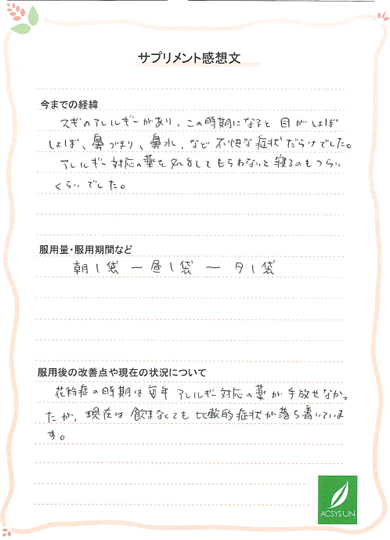 サプリメント感想文
今までの経緯
スギのアレルギーがあり、この時期になると 目がしょぼ
しょぼ、鼻づまり、鼻水、など 不快な症状だらけでした。
アレルギー対応の薬を処方してもらわないと寝るのもつらい
くらいでした。
服用量・服用期間など
朝1袋 ー 昼1袋 ー 夕1袋
服用後の改善点や現在の状況について
花粉症の時期は毎年 アレルギー対応の薬が手放せなかっ
たが、現在は 飲まなくても 比較的症状が落ち着いていま
す。
ACSYSUN